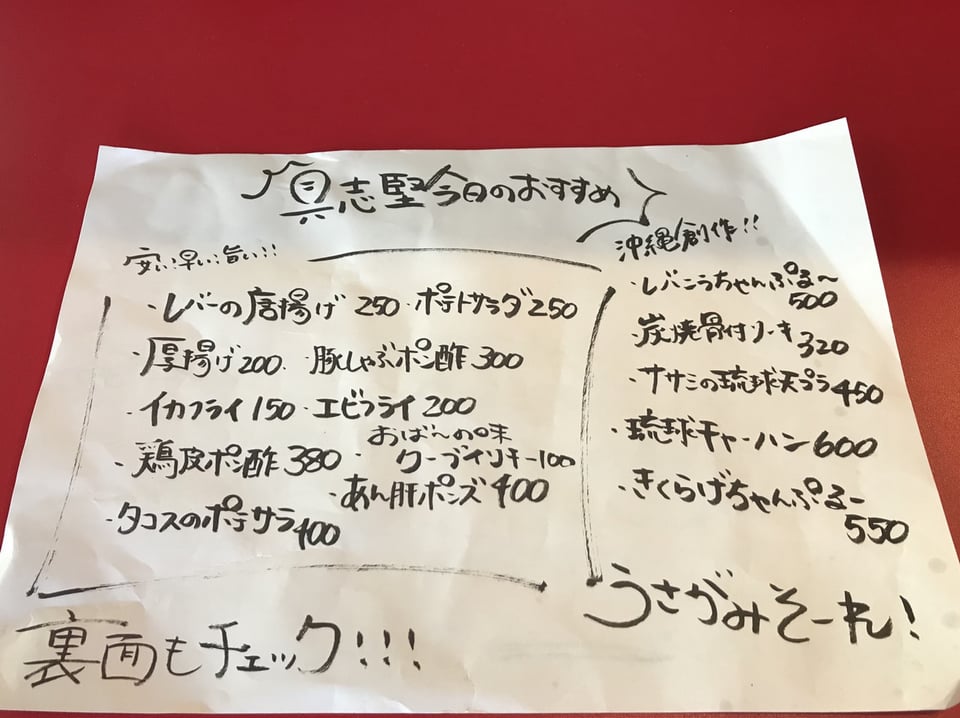 真志堅今日のおすすめ
安い!早い!旨い!!
・レバーの唐揚げ 250 ・ポテトサラダ 250
・厚揚げ 200 ・豚しゃぶポン酢 300
・イカフライ 150 ・エビフライ 200
・鶏皮ポン酢 380 ・おばーの味
クーブイリチー 100
・あん肝ポンズ 400
・タコスのポテサラ 400
沖縄創作!!
・レバニラちゃんぷる〜
500
・炭焼骨付ソーキ 320
・ササミの琉球天プラ 450
・琉球チャーハン 600
・きくらげちゃんぷるー
550
うさがみそーれ!
裏面もチェック!!!